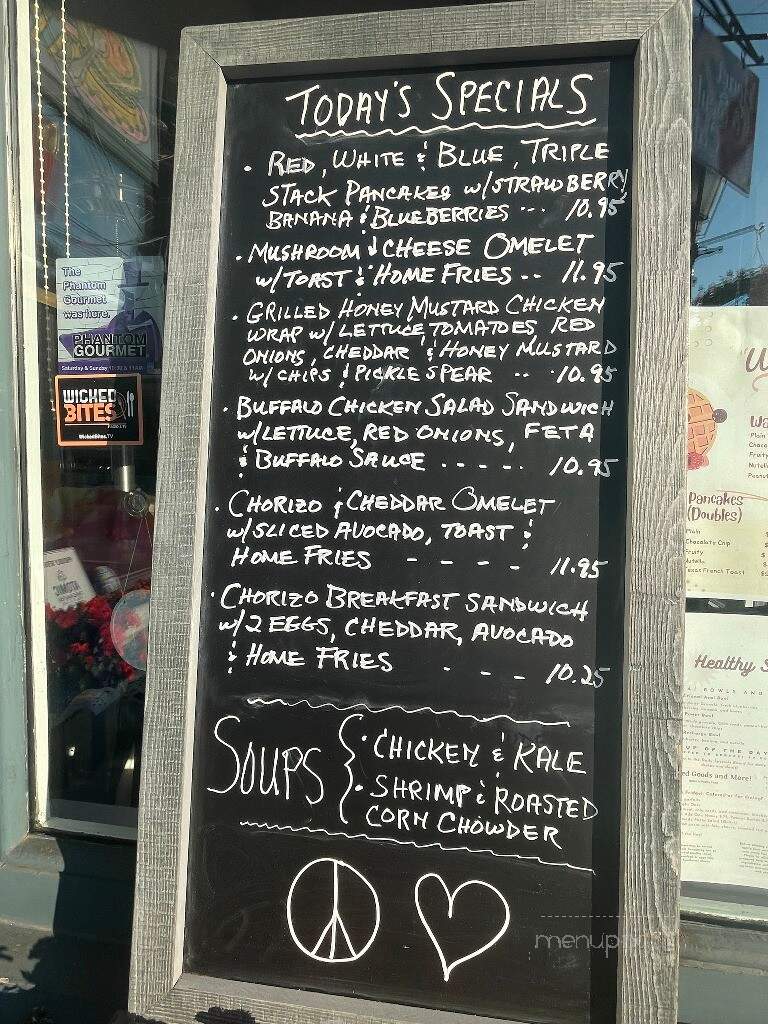 TODAY'S SPECIALS
• RED, WHITE & BLUE, TRIPLE
STACK PANCAKES W/STRAWBERRY,
BANANA & BLUEBERRIES --- 10.95
• MUSHROOM & CHEESE OMELET
W/TOAST & HOME FRIES -- 11.95
• GRILLED HONEY MUSTARD CHICKEN
WRAP W/LETTUCE, TOMATOES, RED
ONIONS, CHEDDAR & HONEY MUSTARD
W/ CHIPS & PICKLE SPEAR -- 10.95
• BUFFALO CHICKEN SALAD SANDWICH
W/LETTUCE, RED ONIONS, FETA
& BUFFALO SAUCE ----- 10.95
• CHORIZO & CHEDDAR OMELET
W/SLICED AVOCADO, TOAST &
HOME FRIES ---- 11.95
• CHORIZO BREAKFAST SANDWICH
W/2 EGGS, CHEDDAR, AVOCADO
& HOME FRIES --- 10.25
SOUPS { • CHICKEN & KALE
• SHRIMP & ROASTED
CORN CHOWDER
The
Phantom
Gourmet
was here.
PHANTOM
GOURMET
Saturday & Sunday
WICKED
BITES
WickedBites.TV
Plain
Pancakes
(Doubles)
Plain
Chocolate Chip
Fruity
Nutella
Texas French Toast
Healthy S
menupix